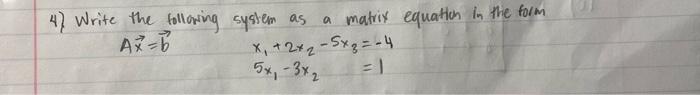 4) Write the following system as a matrix equation in the form
Ax⃗=b⃗ x₁+2x₂-5x₃=-4
5x₁-3x₂ =1